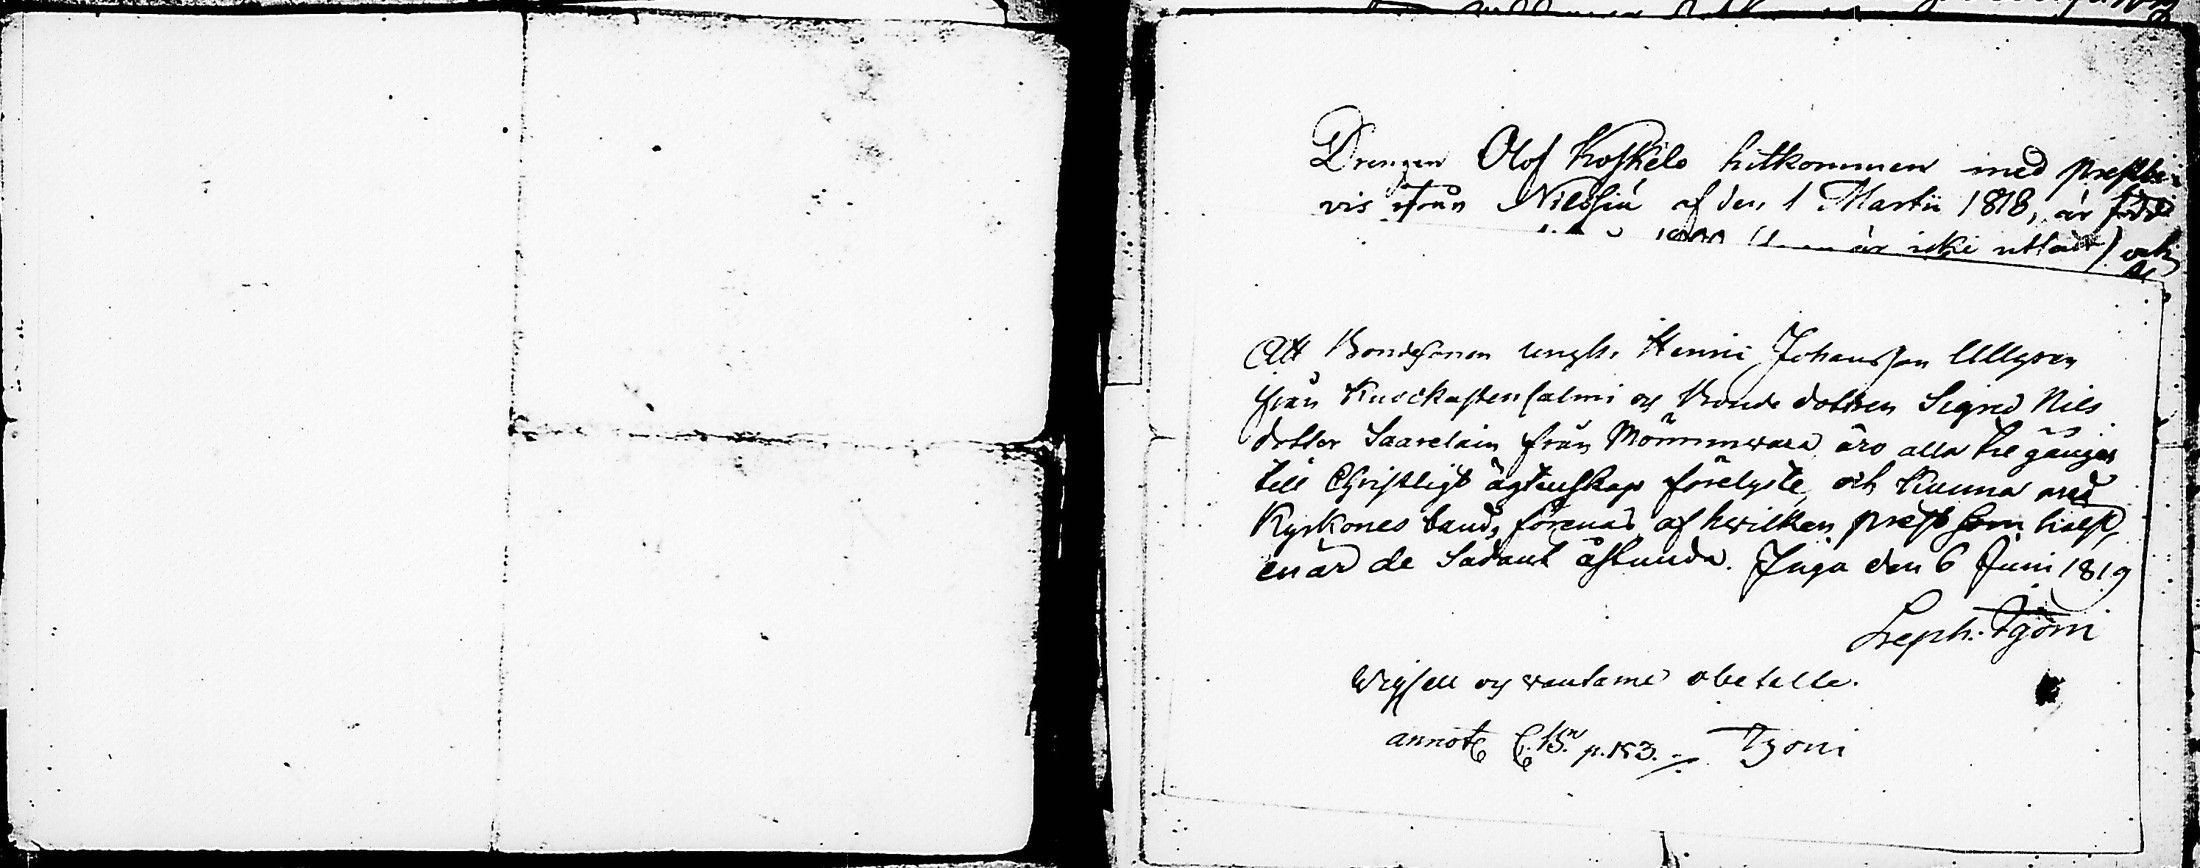 Drengen Olof Koskelo hitkommen med prestbe-
vis ifrån Nilsiä af den 1 Martii 1818, är född
är icke utsatt) och
Att Bondesonen unge Henric Johansson Ullgren
från Knockastensalmi och Bonde dottren Sigrid Nils
dotter Saarelain från Mömmwara äro alla tre gånger
till Christligt ägtenskap förelyste och kunna med
Kyrkones band, förenas af hvilken prest som hälst,
enär de Sådant åstunda. Juga den 6 Juni 1819
Steph.
Wigsell og vantame obetalte.
annot C.B. p. 153.